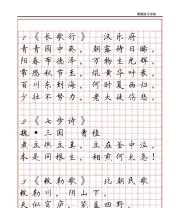 《长歌行》 汉乐府
青青园中葵，朝露待日晞。
阳春布德泽，万物生光辉。
常恐秋节至，焜黄华叶衰。
百川东到海，何时复西归。
少壮不努力，老大徒伤悲。
2《七步诗》
魏·三国 曹植
煮豆燃豆萁，豆在釜中泣，
本是同根生，相煎何太急！
3《敕勒歌》 北朝民歌
敕勒川，阴山下，
天似穹庐，笼盖四野，